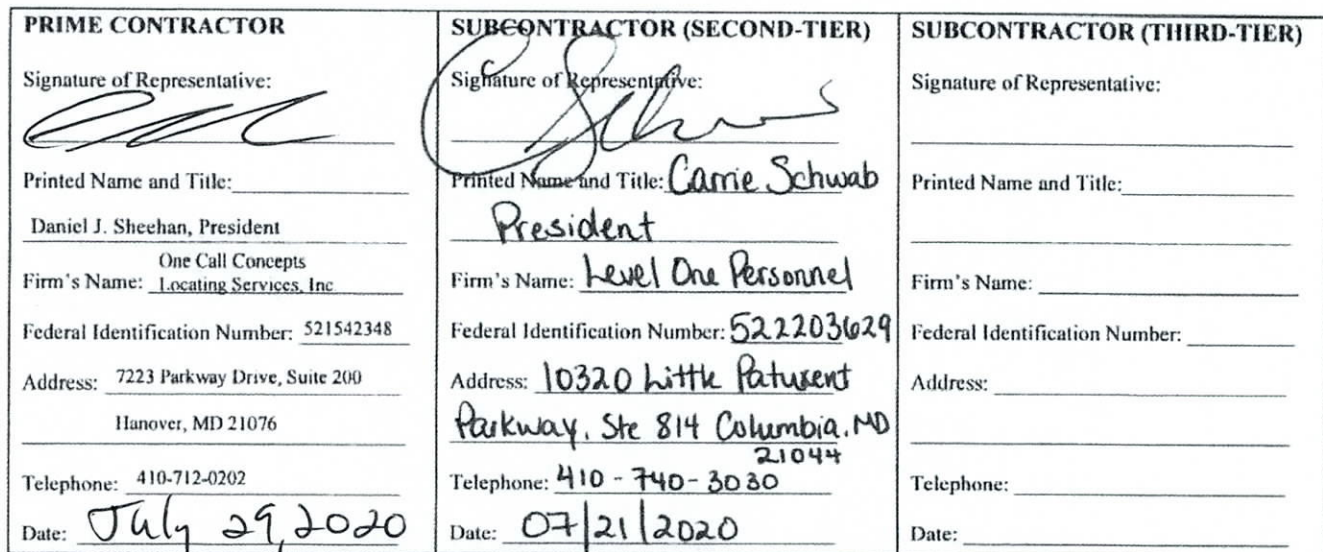 PRIME CONTRACTOR
Signature of Representative:
Printed Name and Title:
Daniel J. Sheehan, President
One Call Concepts
Firm's Name: Locating Services, Inc
Federal Identification Number: 521542348
Address: 7223 Parkway Drive, Suite 200
Hanover, MD 21076
Telephone: 410-712-0202
Date: July 29, 2020
SUBCONTRACTOR (SECOND-TIER)
Signature of Representative:
Printed Name and Title: Carrie Schwab
President
Firm's Name: Level One Personnel
Federal Identification Number: 522203629
Address: 10320 Little Patuxent
Parkway, Ste 814 Columbia, MD
21044
Telephone: 410-740-3030
Date: 07/21/2020
SUBCONTRACTOR (THIRD-TIER)
Signature of Representative:
Printed Name and Title:
Firm's Name:
Federal Identification Number:
Address:
Telephone:
Date: